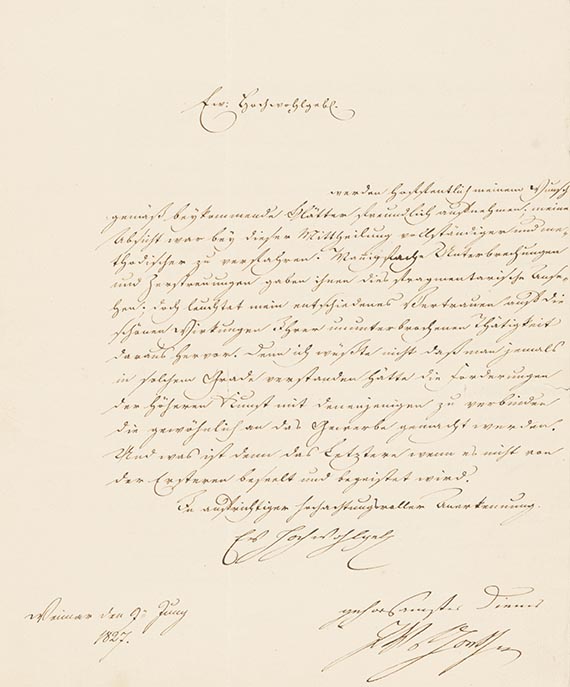 Ew: Hochwohlgebl.
werden hoffentlich meinem Wunsch
gemäß, beykommende Blätter freundlich aufnehmen; meine
Absicht war bey dieser Mittheilung vollständiger und me-
thodischer zu verfahren. Manigfache Unterbrechungen
und Zerstreuungen gaben ihnen dies fragmentarische Anse-
hen; doch leuchtet mein entschiedenes Vertrauen auf die
schönen Wirkungen Ihrer ununterbrochenen Thätigkeit
daraus hervor. Denn ich wüßte nicht daß man jemals
in solchem Grade verstanden hätte die Forderungen
der höheren Kunst mit denenjenigen zu verbinden
die gewöhnlich an das Gewerbe gemacht werden.
Und was ist denn das Letztere wenn es nicht von
der Ersteren beseelt und begeistet wird.
In aufrichtiger hochachtungsvoller Anerkennung.
Ew Hochwohlgeb
Weimar den 9n Juny
1827.
gehorsamster Diener
JWvGoethe